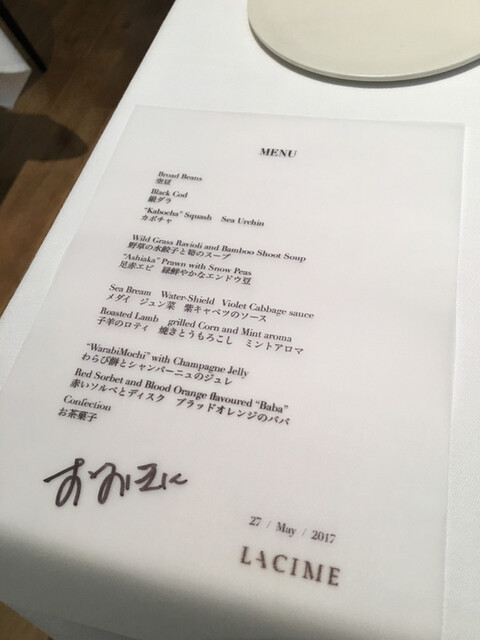 MENU
Broad Beans
空豆
Black Cod
銀ダラ
"Kabocha" Squash Sea Urchin
カボチャ
Wild Grass Ravioli and Bamboo Shoot Soup
野草の水餃子と筍のスープ
"Ashiaka" Prawn with Snow Peas
足赤エビ 緑鮮やかなエンドウ豆
Sea Bream Water-Shield Violet Cabbage sauce
メダイ ジュン菜 紫キャベツのソース
Roasted Lamb grilled Corn and Mint aroma
子羊のロティ 焼きとうもろこし ミントアロマ
"WarabiMochi" with Champagne Jelly
わらび餅とシャンパーニュのジュレ
Red Sorbet and Blood Orange flavoured "Baba"
赤いソルベとディスク ブラッドオレンジのババ
Confection
お茶菓子
27 / May / 2017
LACIME